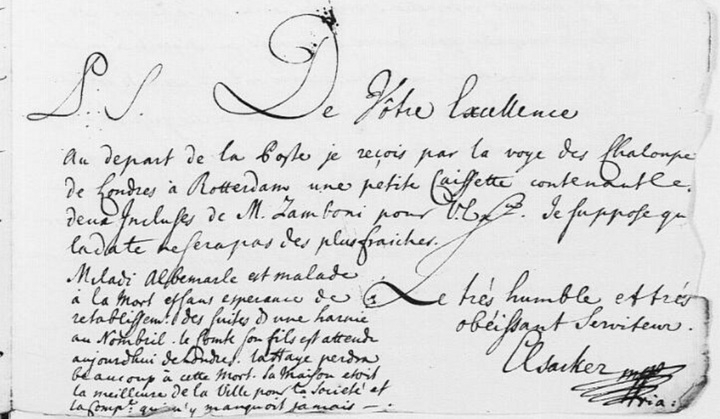 P. S. De Vôtre Excellence
Au depart de la Poste je reçois par la voye des Chaloupe
de Londres à Rotterdam une pétite Caissette contenant le.
deux Incluses de M. Zamboni pour V. Ex. Je suppose qu
la date ne sera pas des plus fraiches.
Miladi Albemarle est malade
à la Mort et sans esperance de
retablissemt. des suites d'une harnie
au Nombril. le Comte son fils est attendu
aujourdhui de Londres. la Haye perdra
beaucoup à cette Mort. sa Maison etoit
la meilleure de la Ville pour la Société et
la Compe. qui n'y manquoit jamais —.
Le trés humble et trés
obéissant Serviteur.